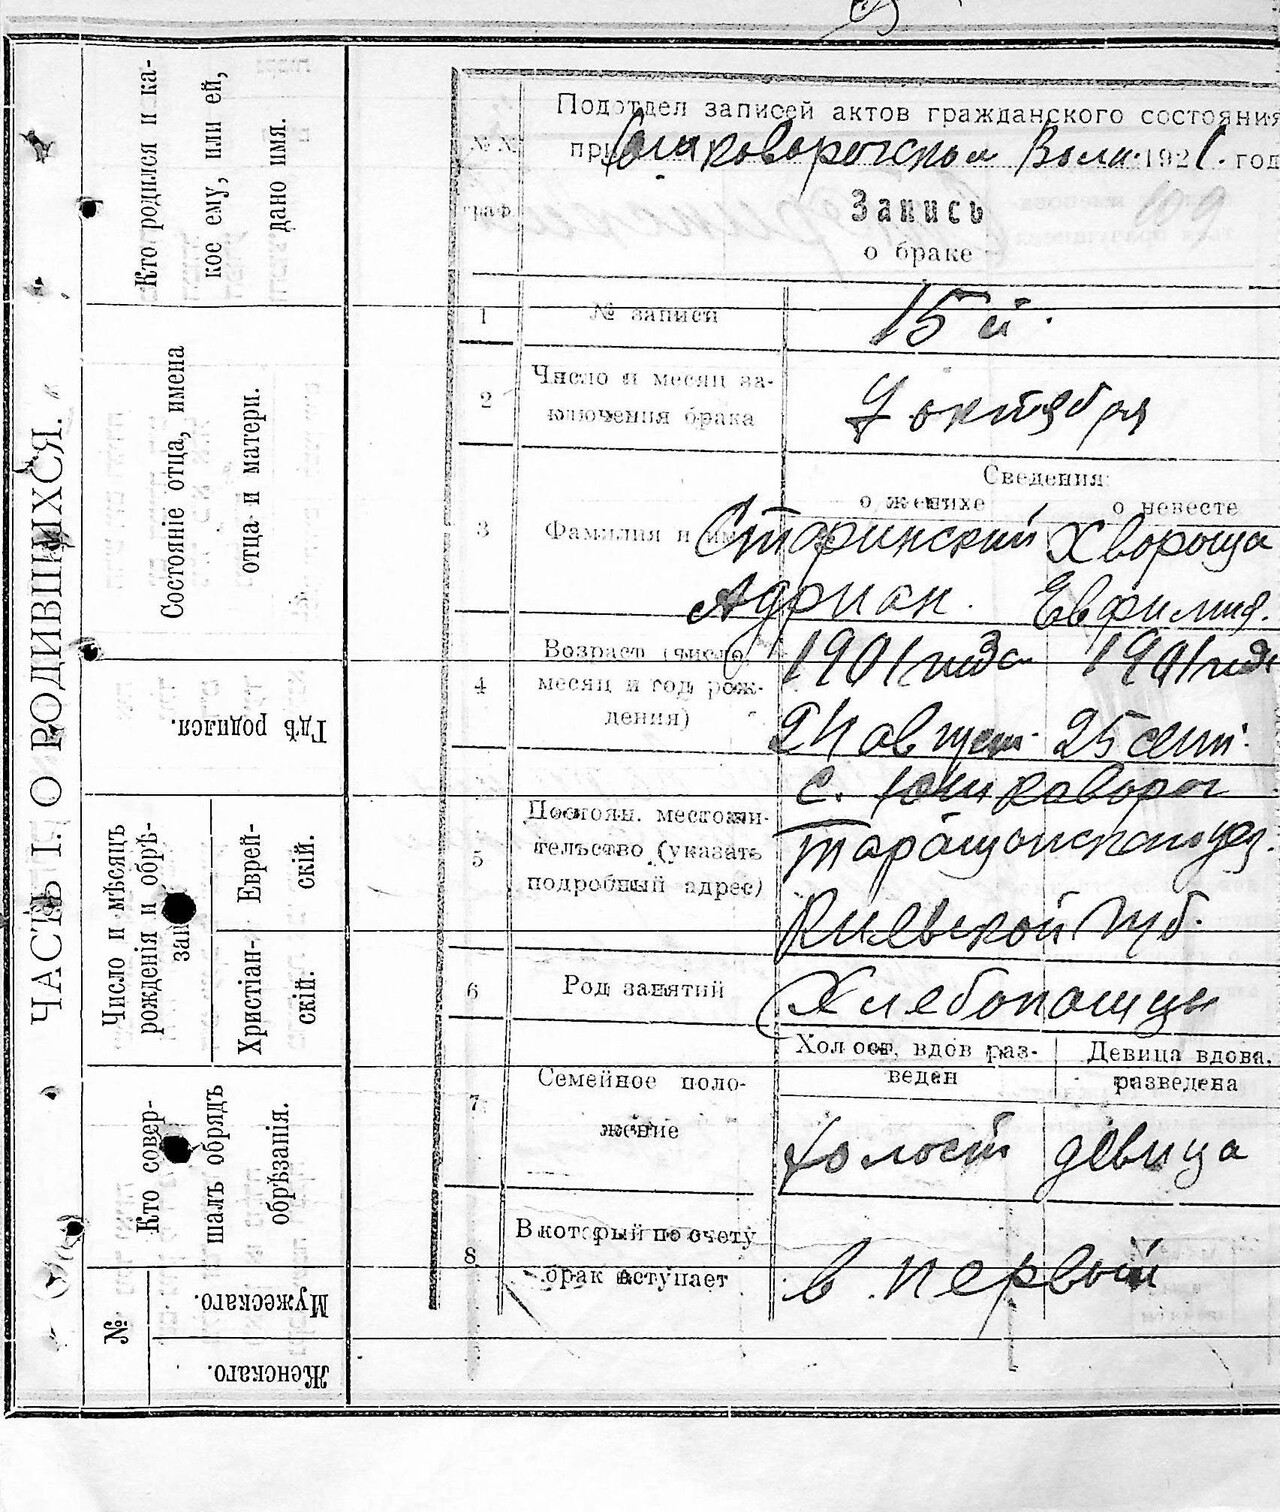 ЧАСТЬ I. О РОДИВШИХСЯ.
Кто родился и ка-
кое ему, или ей,
дано имя.
Состоянiе отца, имена
отца и матери.
Гдѣ родился.
Число и мѣсяцъ
рожденiя и обрѣ-
Христiан-
скiй.
Еврей-
скiй.
Кто совер-
шалъ обрядъ
обрѣзанiя.
№
Мужескаго.
Женскаго.
Подотдел записей актов гражданского состояния
при Волн. 1921. год
Запись
о браке
1 № записи 15 й.
2 Число и месяц за-
ключения брака
7 октября
Сведения
о женихе о невесте
3 Фамилия и
Старинский Хвороща
Адриан. Евфимия.
4 Возраст (число
месяц и год рож-
дения)
1901 года 1901 года
24 август. 25 сент.
5 Постоян. местожи-
тельство (указать
подробный адрес)
с.
Таращанского уез.
Киевской губ.
6 Род занятий Хлебопашцы
7 Семейное поло-
жение
Холост, вдов раз-
веден
Девица вдова.
разведена
холост девица
8 В который по счету
брак вступает
в первый